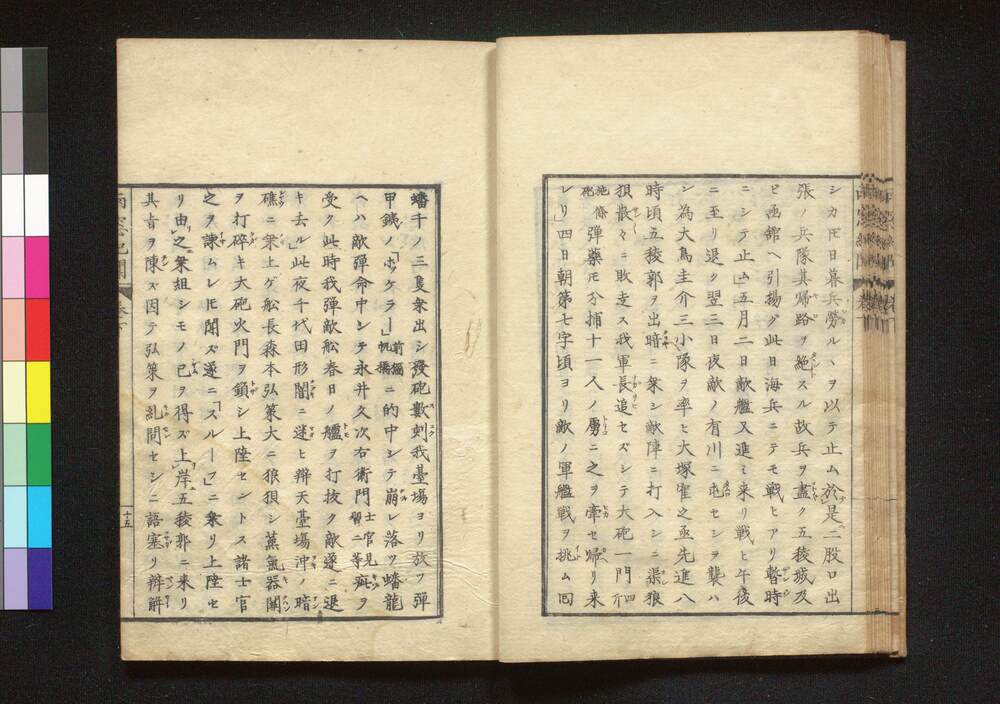 シカ𪜈日暮兵勞ルヽヲ以テ止ム於是二股口出
張ノ兵隊其帰路ヲ絶スル故兵ヲ盡ク五稜城及
ビ函舘ヘ引揚グ此日海兵ニテモ戦ヒアリ暫時
ニシテ止ム」五月二日敵艦又進ミ来リ戦ヒ午後
ニ至リ退ク翌三日夜敵ノ有川ニ屯セシヲ襲ハ
ン為大鳥圭介三小隊ヲ率ヒ大塚霍之丞先進八
時頃五稜郭ヲ出暗ニ乗シ敵陣ニ打入シニ張狼
狽散々ニ敗走ス我軍長追セズシテ大砲一門四斤
施條砲弾藥𪜈分捕十一人ノ虜ニ之ヲ牽セ帰リ来
レリ」四日朝第七字頃ヨリ敵ノ軍艦戦ヲ挑ム回
蟠千ノ三隻乗出シ發砲數刻我臺場ヨリ放ツ弾
甲鉄ノ「ホツケラー」前檣帆橋ニ的中シテ崩レ落ツ蟠龍
ヘハ敵弾命中シテ永井久次右衛門士官見習二等疵ヲ
受ク此時我弾敵舩春日ノ艫ヲ打抜ク敵遂ニ退
キ去ル」此夜千代田形闇ニ迷ヒ辨天臺場沖ノ暗
礁ニ乗上ゲ舩長森本弘策大ニ狼狽シ蒸氣器関
ヲ打碎キ大砲火門ヲ鎖シ上陸セントス諸士官
之ヲ諌ムレ𪜈聞ズ遂ニ「スループ」ニ乗リ上陸セ
リ由之乗組シモノ已ヲ得ズ上岸」五稜郭ニ来リ
其旨ヲ陳ズ因テ弘策ヲ糺問セシニ語塞リ辨解
十五